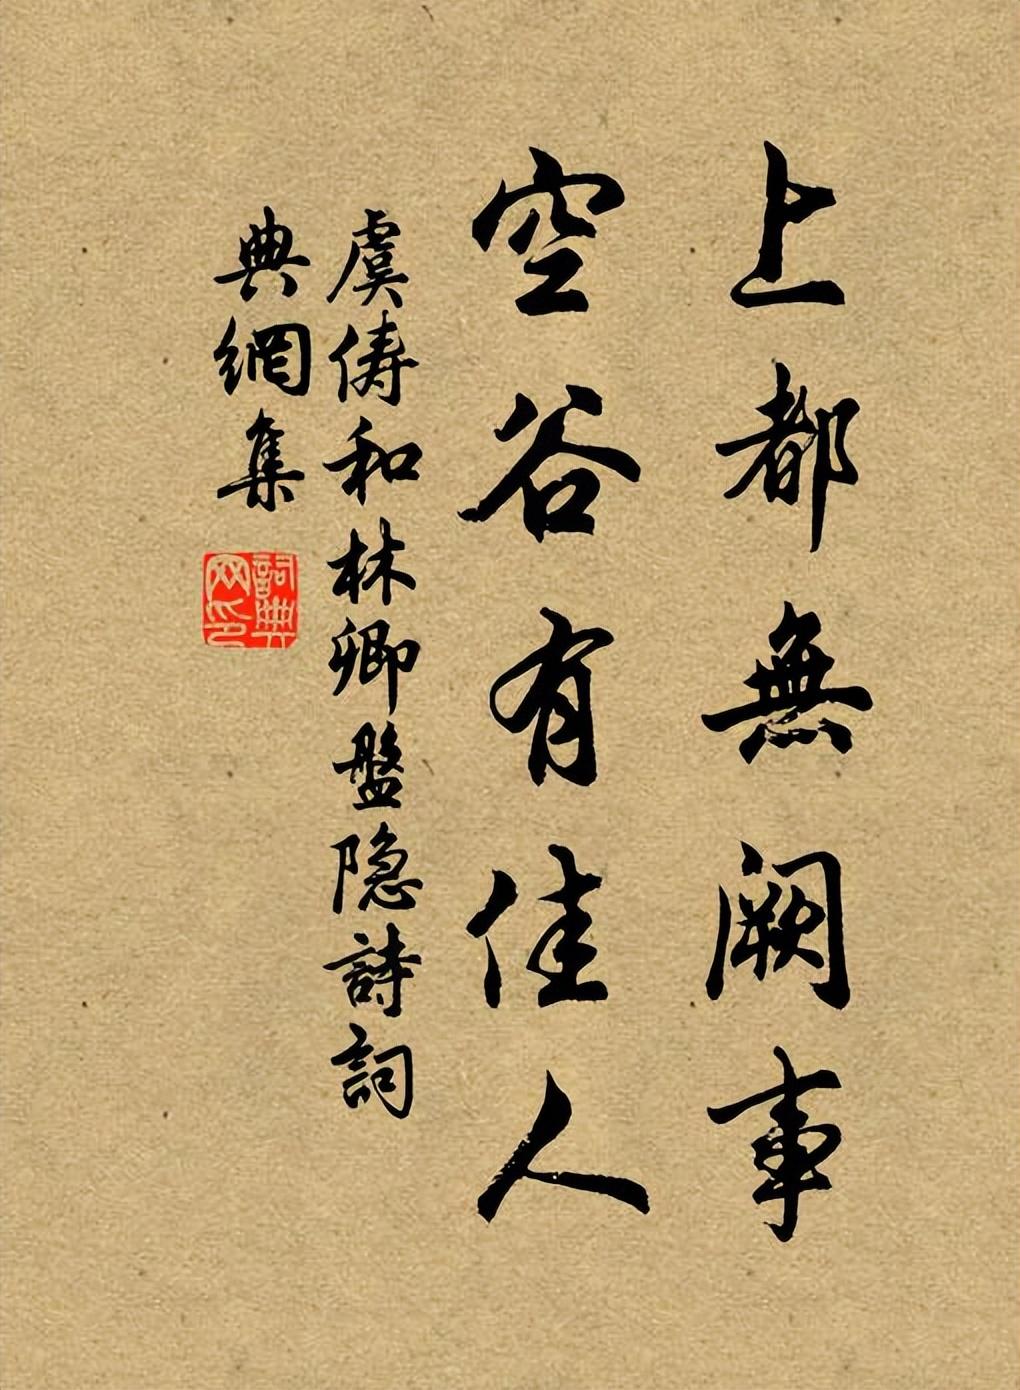 上都無阙事
空谷有佳人
虞俦和林卿盤隐詩詞
典網集
詞典网印